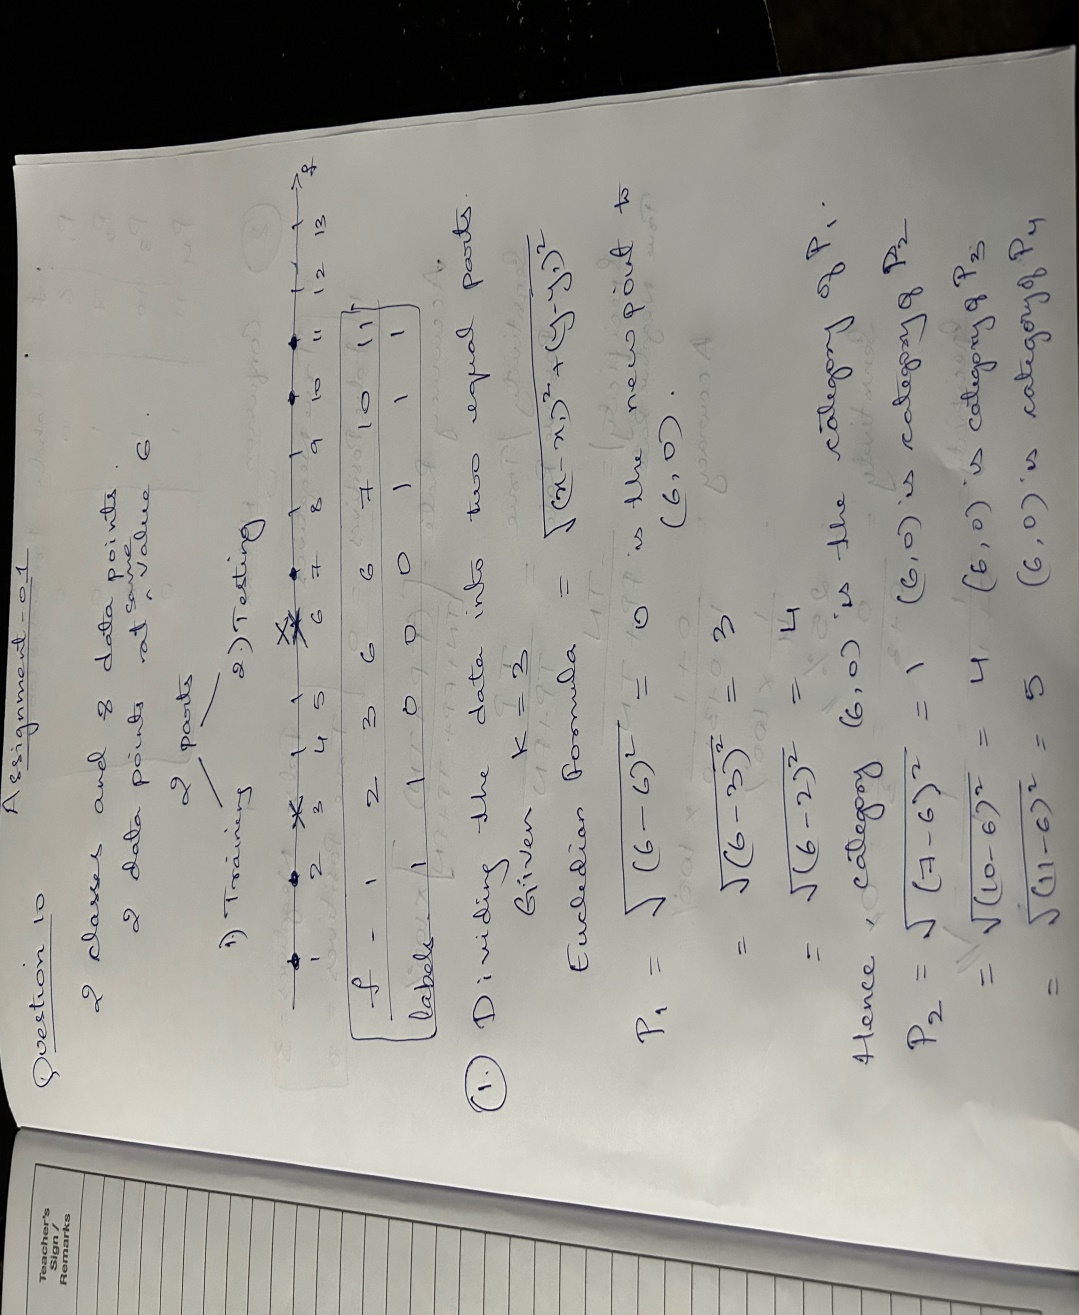 Assignment - 01
Question 10
2 classes and 8 data points.
2 data points at same value 6.
2 parts
1) Training 2) Testing
1 2 3 4 5 6 7 8 9 10 11 12 13 f
f - 1 2 3 6 6 7 10 11
labels 1 1 0 0 0 1 1 1
1. Dividing the data into two equal parts.
Given K = 3
Eucledian Formula = √(x-x₁)²+(y-y₁)²
P₁ = √(6-6)² = 0 is the new point to (6,0).
= √(6-3)² = 3
= √(6-2)² = 4
Hence, category (6,0) is the category of P₁.
P₂ = √(7-6)² = 1 (6,0) is category of P₂
= √(10-6)² = 4 (6,0) is category of P₃
= √(11-6)² = 5 (6,0) is category of P₄
Teacher's
Sign /
Remarks